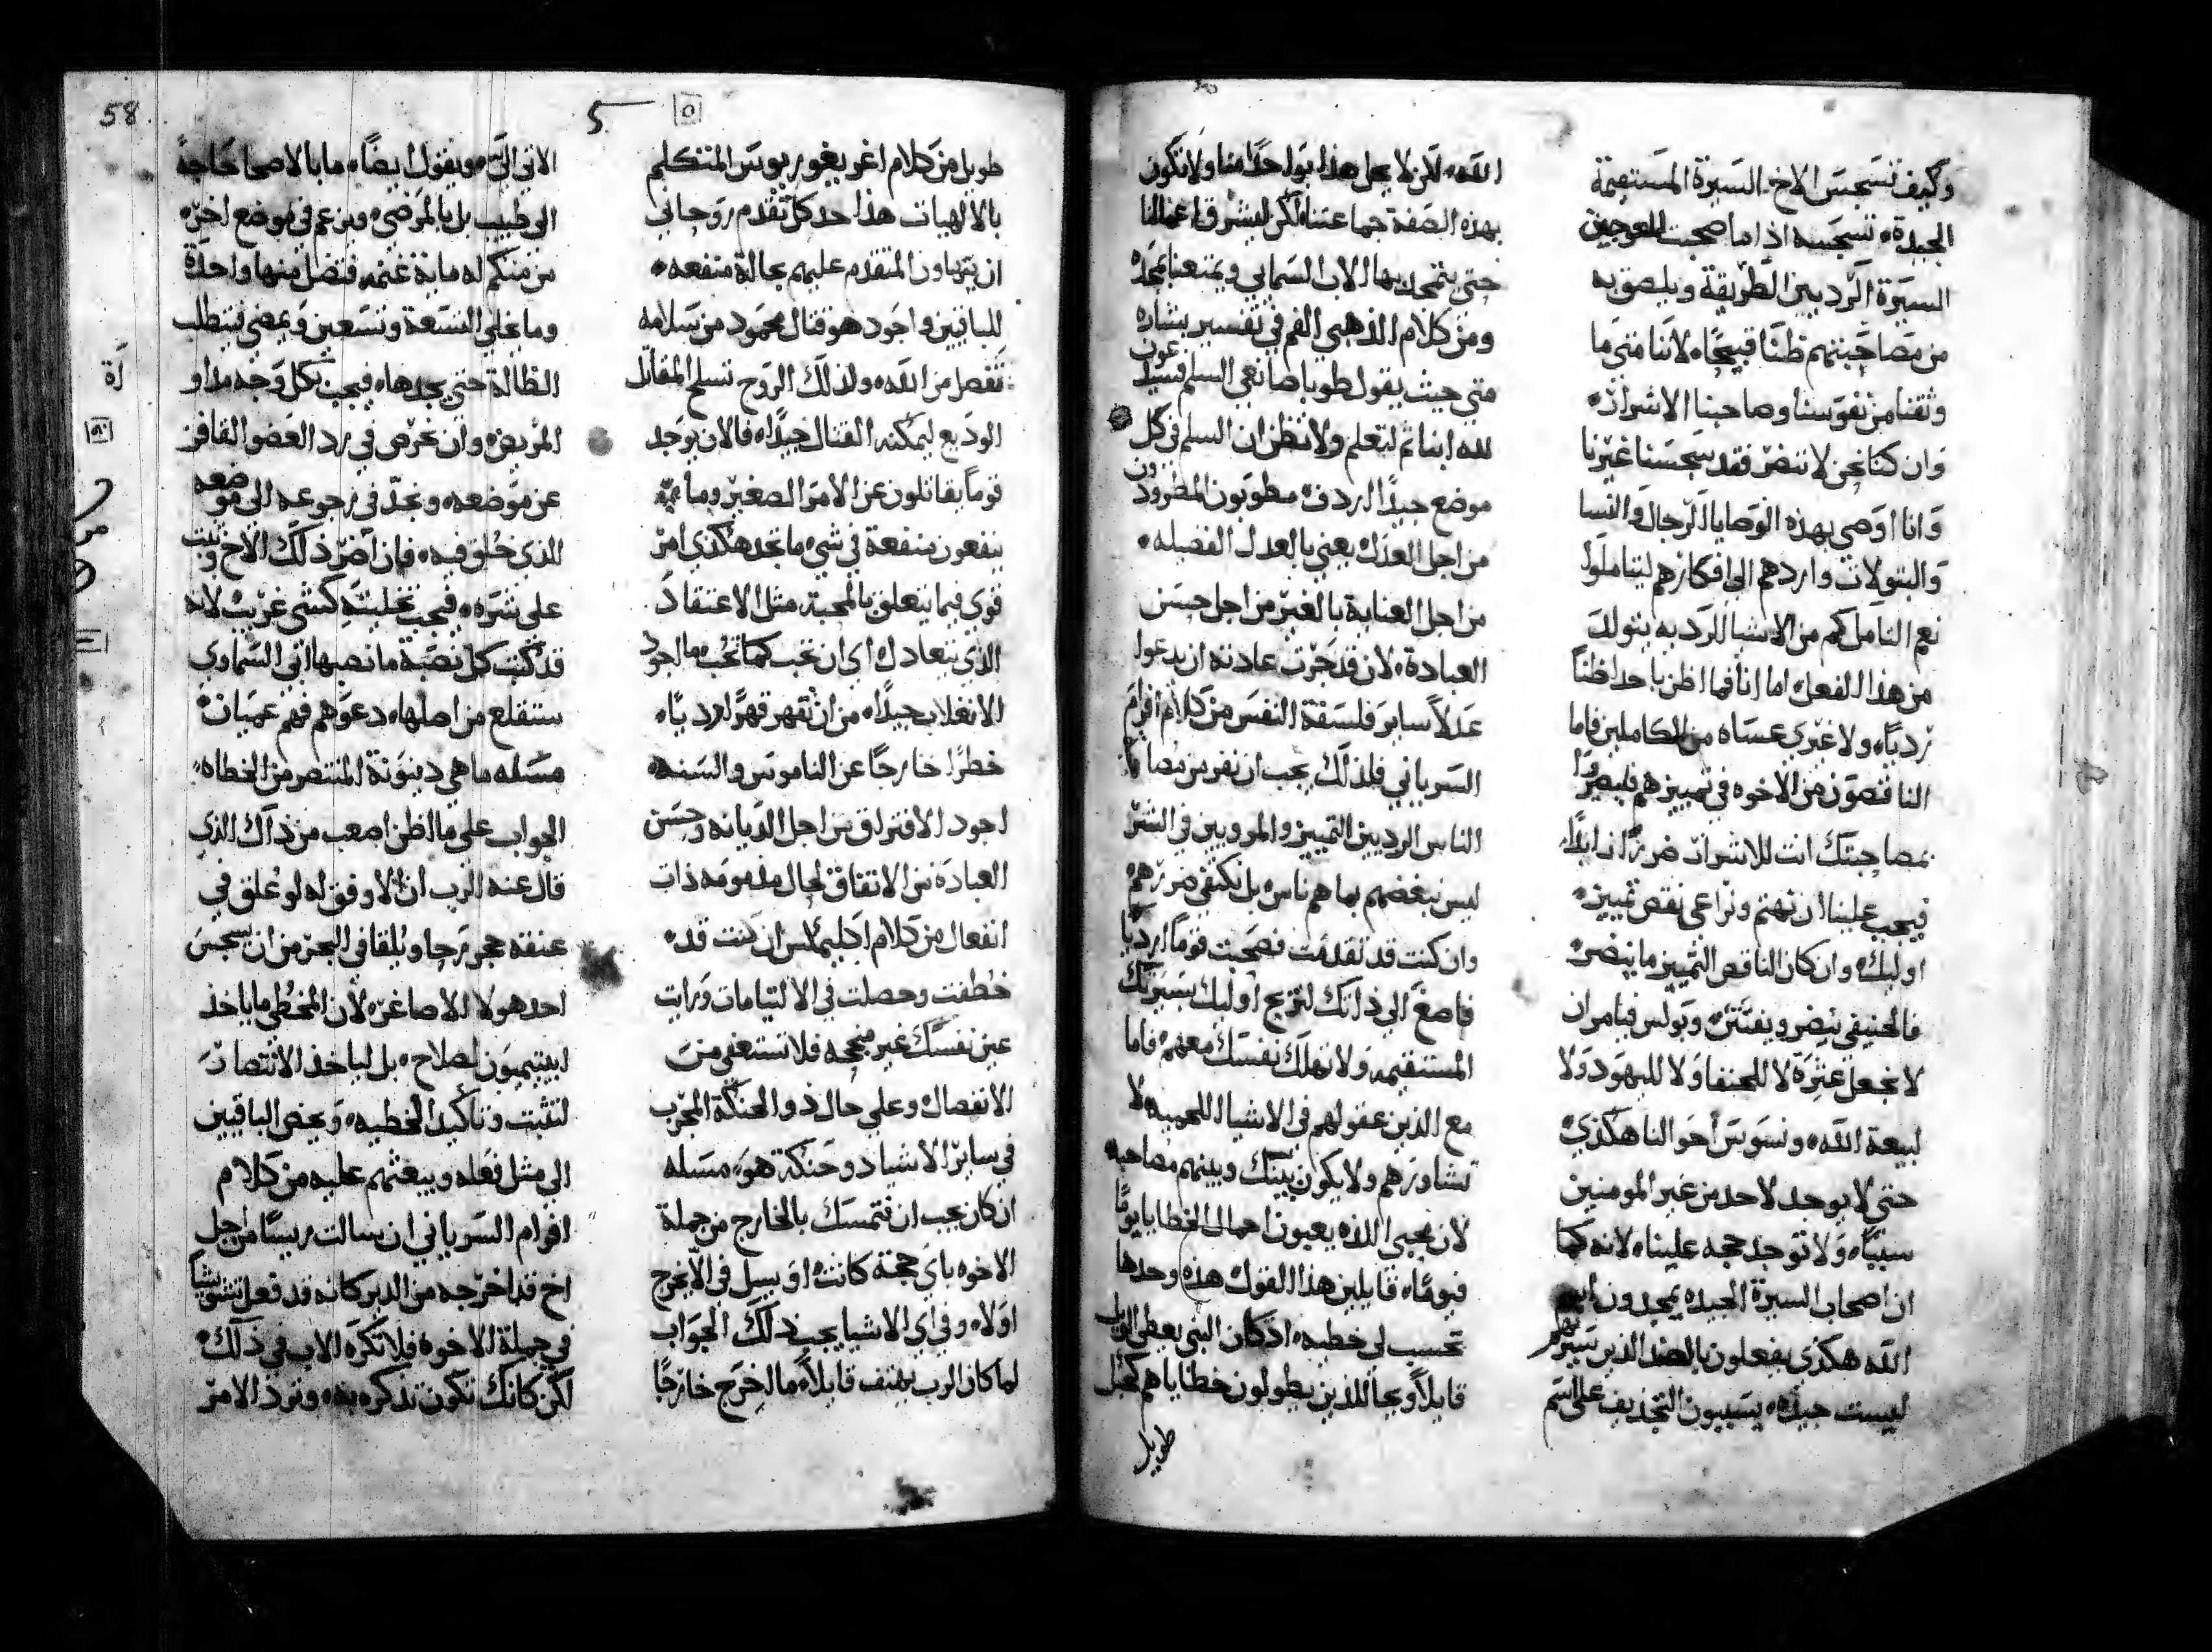 وكيف تسجس الاخ السيرة المستقيمة
الجيدة، تسجسه اذا ما صحبت المعوجين
السيرة الرديين الطريقة ويلصق به
من مصاحبتهم ظنًا قبيحًا، لاننا متى ما
وثقنا من نفوسنا وصاحبنا الاشرار،
وان كنا نحن لا ننضر فقد نسجسنا غيرنا
وانا اوصي بهذه الوصايا الرجال والنسا
والبتولات واردهم الى افكارهم ليتاملوا
نعم التامل كم من الاشيا الرديه يتولد
من هذا الفعل، اما انا فما اظن باحد ظنًا
رديًا، ولا غيري عساه من الكاملين فاما
الناقصون من الاخوه في تمييزهم فليصيروا
بمصاحبتك انت للاشرار ضررًا
فيجب علينا ان نهتم ونراعي نقص تمييز،
اوليك، وان كان الناقص التمييز ما ينضر،
فالحنيفي ينضر ويفتتن، وبولس فيامر ان
لا نجعل عثرة لا للحنفا ولا لليهود ولا
لبيعة الله، ونسوس احوالنا هكذي،
حتى لا يوجد لاحد من غير المومنين
سببًا، ولا توجد حجه علينا، لانه كما
ان اصحاب السيرة الجيده يمجدون
الله هكذي يفعلون بالضد الذين سيرتهم
ليست جيدة، يسببون التجذيف على اسم
الله، لكن لا يجعل هذا بواحدًا منا ولا نكون
بهذه الصفة جماعتنا، لكن لتشرق اعمالنا
حتى يتمجد بها الاب السماني ويمتعنا بمجده
ومن كلام الذهبي الفم في تفسير بشاره
متى حيث يقول طوبا صانعي السلم فسيدعون
لله ابنا ثم لتعلم ولا تظن ان السلم في كل
موضع جيدًا اردف، مطوبون المطرودون
من اجل العدل، يعني بالعدل الفضيله،
من اجل العناية بالغير من اجل حسن
العبادة، لان قد جرت عادته ان يدعوا
عدلاً ساير فلسفة النفس من كلام افرام
السرياني فلذلك يجب ان نفر من مصاحبة
الناس الرديين التمييز والمروبين في الشر
ليس نبغضهم بما هم ناس، بل نكتفي ضررهم
وان كنت قد تقدمت فصحبت قومًا ارديًا
فاصغ الى ذاتك لتزيح اوليك بسيرتك
المستقيمه، ولا تهلك نفسك معهم، فاما
مع الذين عقولهم في الاشيا اللحميه لا
تشاورهم ولا يكون بينك وبينهم مصاحبه
لان محبي اللذه يعبون احمال الخطايا يومًا
فيومًا، قايلين هذا القول، هذه وحدها
تحسب لي خطيه، اذ كان النبي يعطي الويل
قايلاً ويحًا للذين يطولون خطاياهم كحبل
طويل
طويل من كلام اغريغوريوس المتكلم
بالالهيات هذا حد كل تقدم روحاني
ان يتهاون المتقدم عليهم بحالة منفعه،
للباقيين واجود هو قتال محمود من سلامه
تفصل من الله، ولذلك الروح تسلح المقاتل
الوديع ليمكنه القتال جيدًا، فالان يوجد
قومًا يقاتلون عن الامر الصغير وما
ينفعون منفعة في شي، ما تجد هكذي امر
قوي فيما يتعلق بالمحبة، مثل الاعتقاد
الذي يتعادل، اي ان تحب كما تحب، ما اجود
الانغلاب جيدًا، من ان تقهر قهرًا رديًا،
خطرًا خارجًا عن الناموس والسنه،
اجود الافتراق من اجل الديانه وحسن
العبادة من الاتفاق لحال مذمومه ذات
انفعال من كلام اكليمكس ان كنت قد،
خطفت وحصلت في الالتيامات ورايت
عين نفسك غير منجحه فلا تستعفي من
الانفصال، وعلى حال ذو الحنكة المجرب
في ساير الاشيا ذو حنكة هو، مسله
ان كان يجب ان نتمسك بالخارج من جملة
الاخوه باي حجة كانت، او يسل في الا يخرج
اولاً، وفي اي الاشيا يجب ذلك، الجواب
لما كان الرب يهتف قايلاً، ما اخرج خارجًا
58
5
٥
الاتي الي، ويقول ايضًا، ما بالاصحا حاجة
الى طبيب بل بالمرضى، ويزعم في موضع اخر،
من منكم له ماية غنمه، فتضل منها واحدة
وما يخلي التسعة وتسعين ويمضي فيتطلب
الظالة حتى يجدها، فيجب بكل وجه مداواة
المريض، وان نحرص في رد العضو القافز
عن موضعه، ونجد في رجوعه الى موضعه
الذي خلق فيه، فان اضر ذلك الاخ وثبت
على شره، فيجب تخليته كشي غريب، لانه
قد كتب كل نصبة ما نصبها ابي السماوي
ستنقلع من اصلها، دعوهم فهم عميان،
مسله ما هي دينونة المنتصر من الخطاه،
الجواب على ما اظن اصعب من ذاك الذي
قال عنه الرب ان الاوفق له لو علق في
عنقه حجر رحا ويلقا في البحر من ان يسجس
احد هولا الاصاغر، لان المخطي ما ياخذ
اينتيميون لصلاح، بل لياخذ الانتصار
لتثبت وتاكيد الخطيه، ويحض الباقيين
الى مثل فعله ويبعثهم عليه من كلام
افرام السرياني ان سالت ريسًا من اجل
اخ قد اخرجه من الدير كانه قد فعل تشويشًا
في جملة الاخوه، فلا تكره الاب في ذلك،
لكن كانك تكون تذكره به، وترد الامر